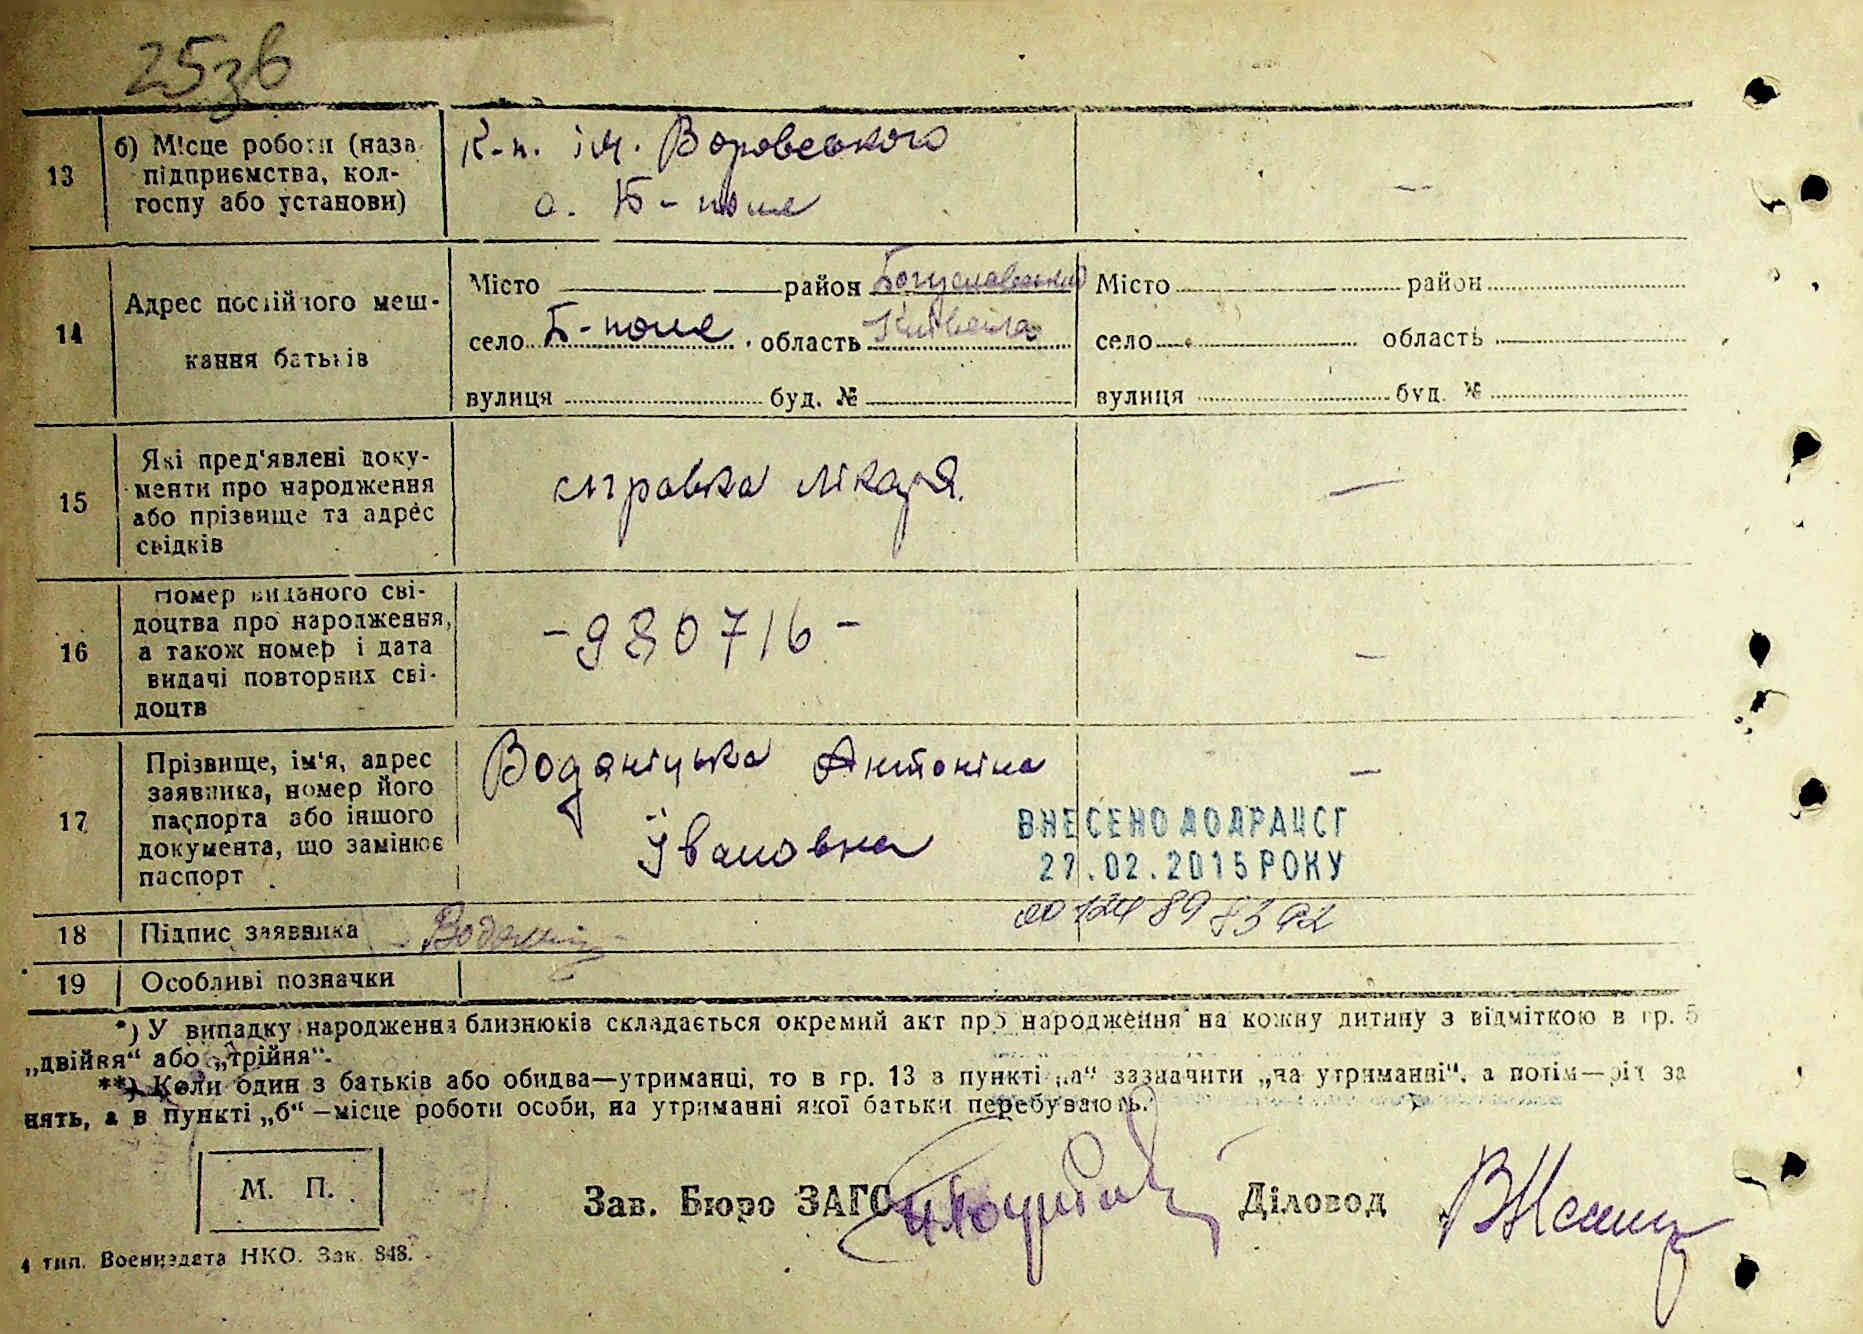 25зв
13
б) Місце роботи (назв
підприємства, кол-
госпу або установи)
К-п. ім. Воровського
с. Б-поле
—
14
Адрес постійного меш-
кання батьків
Місто район Богуславський
село Б-поле область Київська
вулиця буд. №
Місто район
село область
вулиця буд. №
15
Які пред'явлені доку-
менти про народження
або прізвище та адрес
свідків
справка лікаря.
—
16
Номер виданого сві-
доцтва про народження,
а також номер і дата
видачі повторних сві-
доцтв
-980716-
—
17
Прізвище, ім'я, адрес
заявника, номер його
паспорта або іншого
документа, що замінює
паспорт
Водяніцька Антоніна
Івановна
—
ВНЕСЕНО ДО ДРАЦСГ
27.02.2015 РОКУ
18
Підпис заявника
19
Особливі позначки
*) У випадку народження близнюків складається окремий акт про народження на кожну дитину з відміткою в гр. 5
„двійня“ або „трійня“.
**) Коли один з батьків або обидва—утриманці, то в гр. 13 в пункті „а“ зазначити „на утриманні“, а потім—рід за
нять, а в пункті „б“ —місце роботи особи, на утриманні якої батьки перебувають.
М. П.
Зав. Бюро ЗАГС
Діловод
4 тип. Воениздата НКО. Зак. 848.